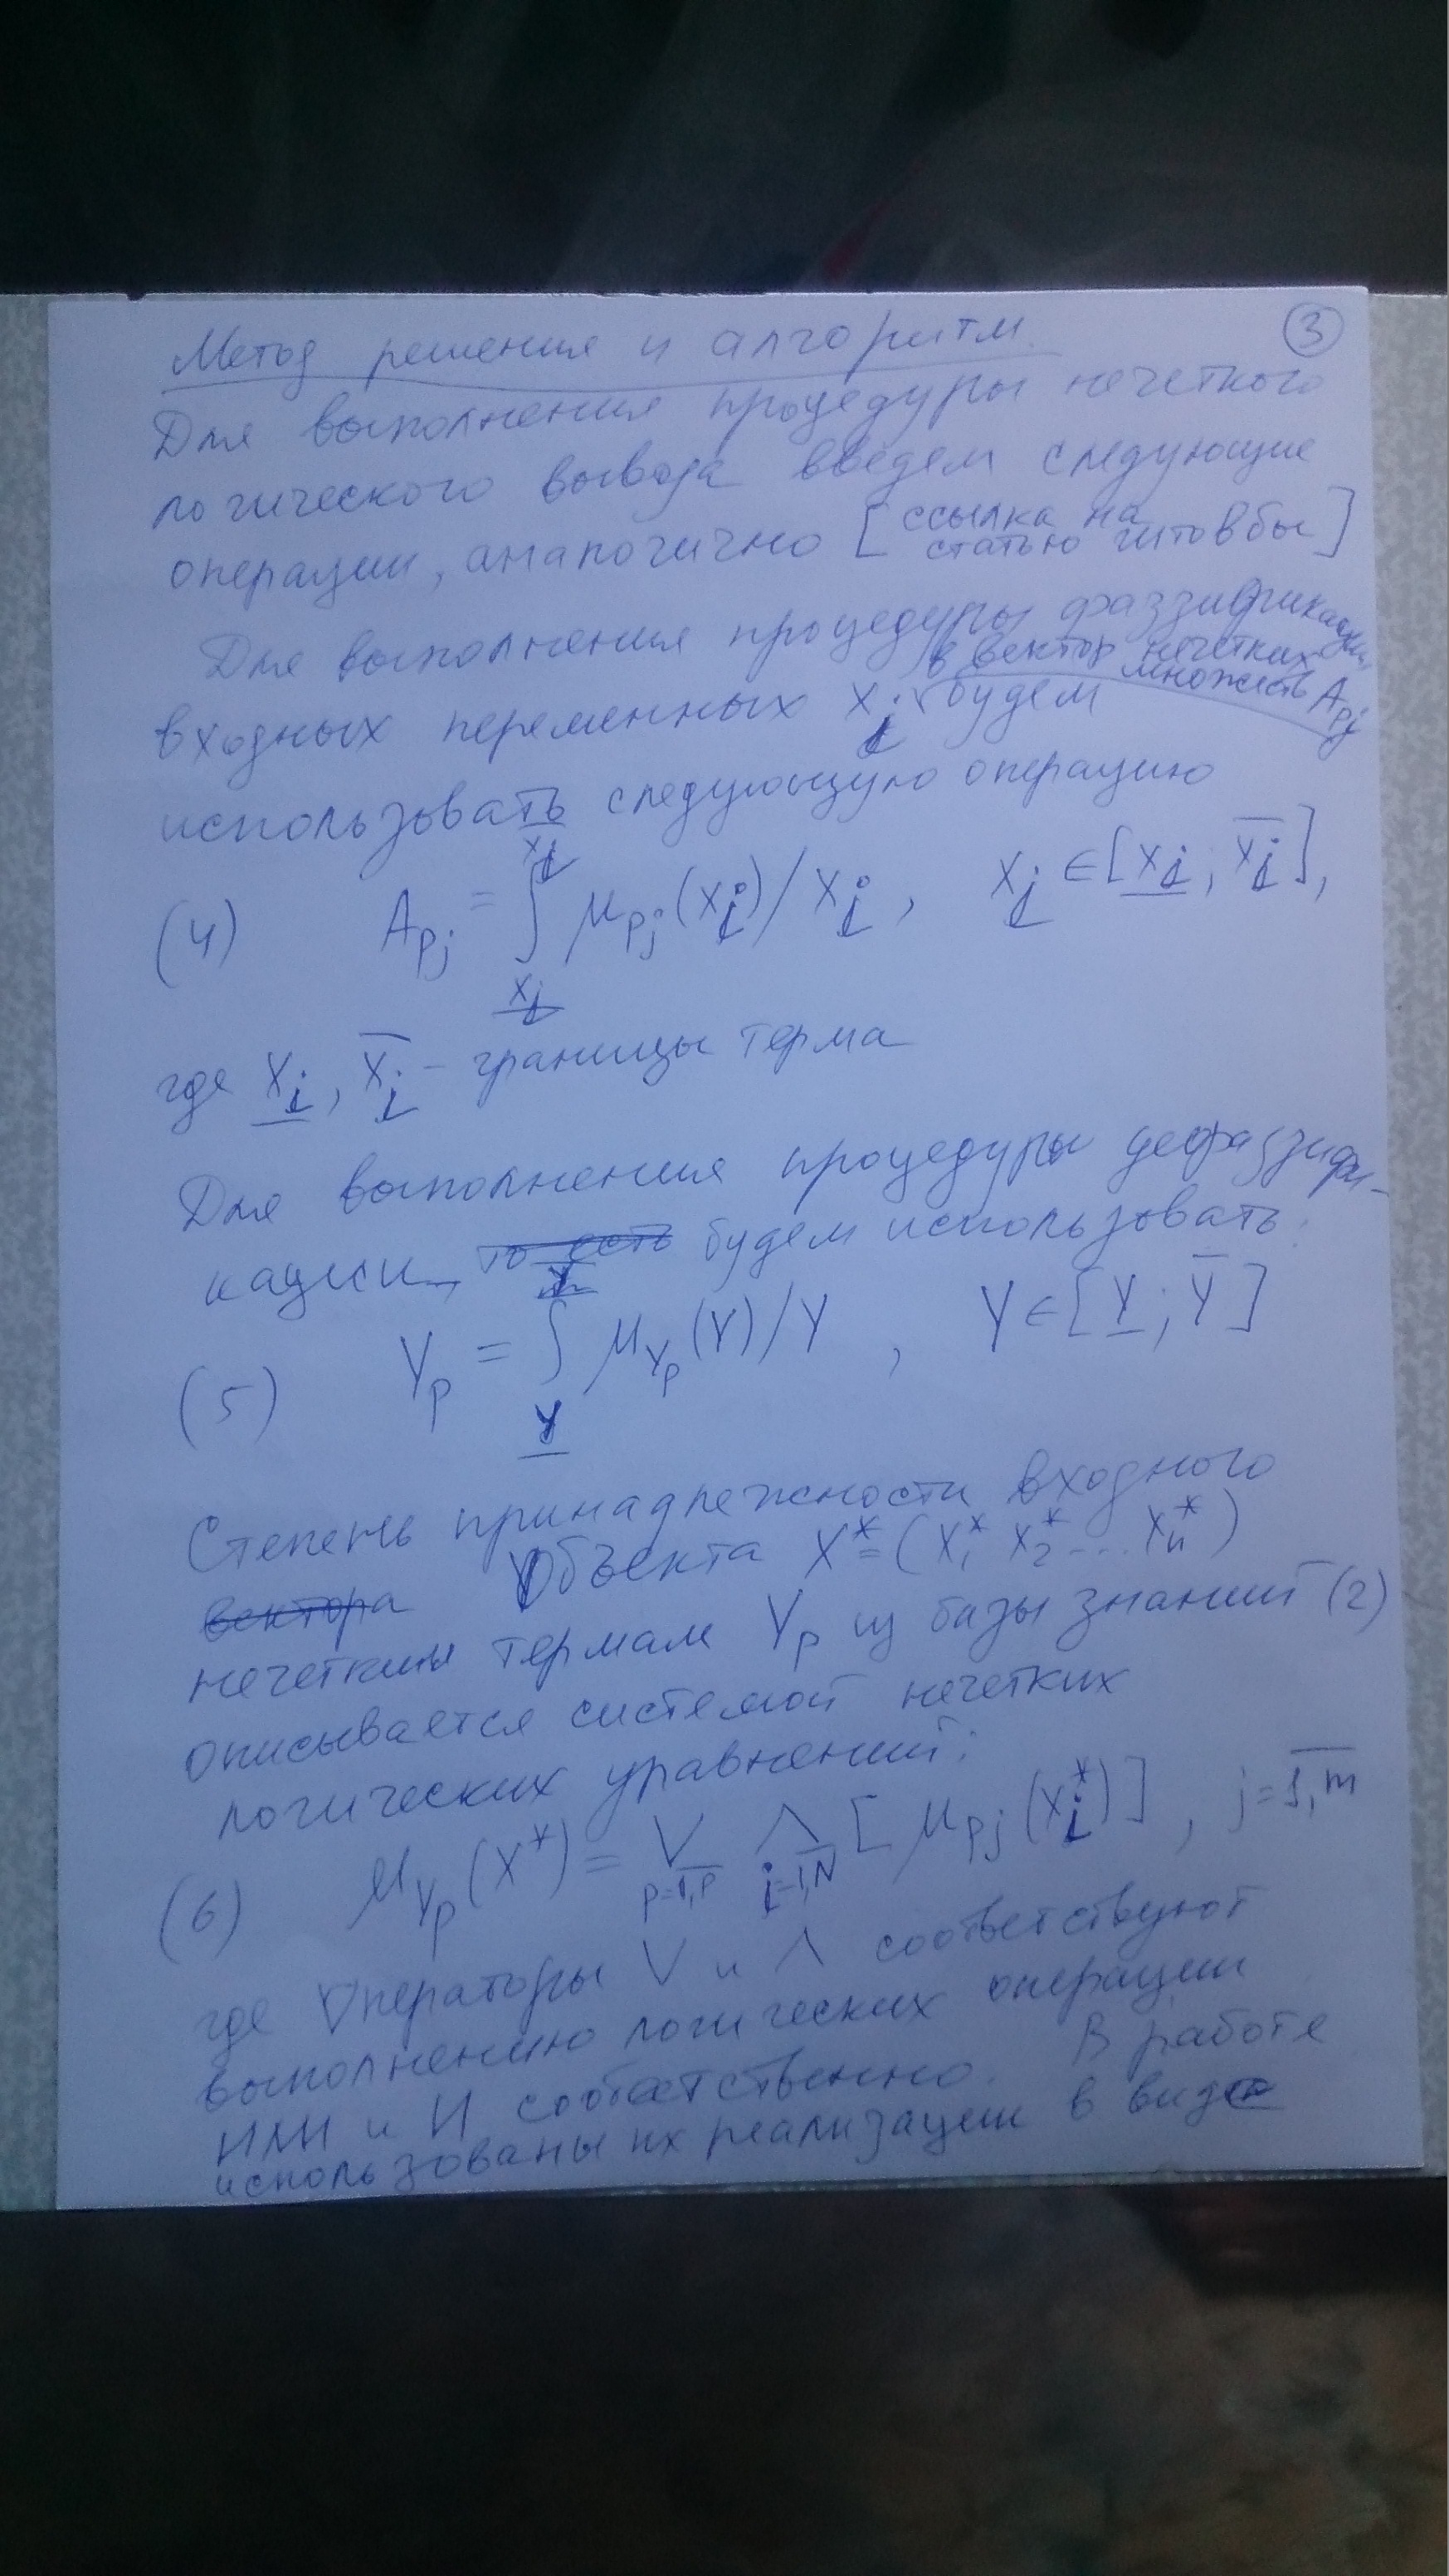 Метод решения и алгоритм. ③
Для выполнения процедуры нечеткого
логического вывода введем следующие
операции, аналогично [ссылка на
статью Штовбы]
Для выполнения процедуры фаззификации
в вектор нечетких
множеств A_pj
входных переменных x_i будем
использовать следующую операцию
(4) A_pj = ∫ μ_pj(x_i)/x_i, x_i ∈ [x̲_i; x̅_i],
где x̲_i, x̅_i – границы терма
Для выполнения процедуры дефаззифи-
кации, то есть будем использовать:
(5) Y_p = ∫ μ_Yp(Y)/Y, Y ∈ [Y̲; Y̅]
Степень принадлежности входного
вектора Объекта X* = (x₁* x₂* ... x_n*)
нечетким термам Y_p из базы знаний (2)
описывается системой нечетких
логических уравнений:
(6) μ_Yp(X*) = ∨ p=1,P ∧ i=1,N [μ_pj(x_i*)], j = 1,m
где Операторы ∨ и ∧ соответствуют
выполнению логических операций
ИЛИ и И соответственно. В работе
использованы их реализации в виде